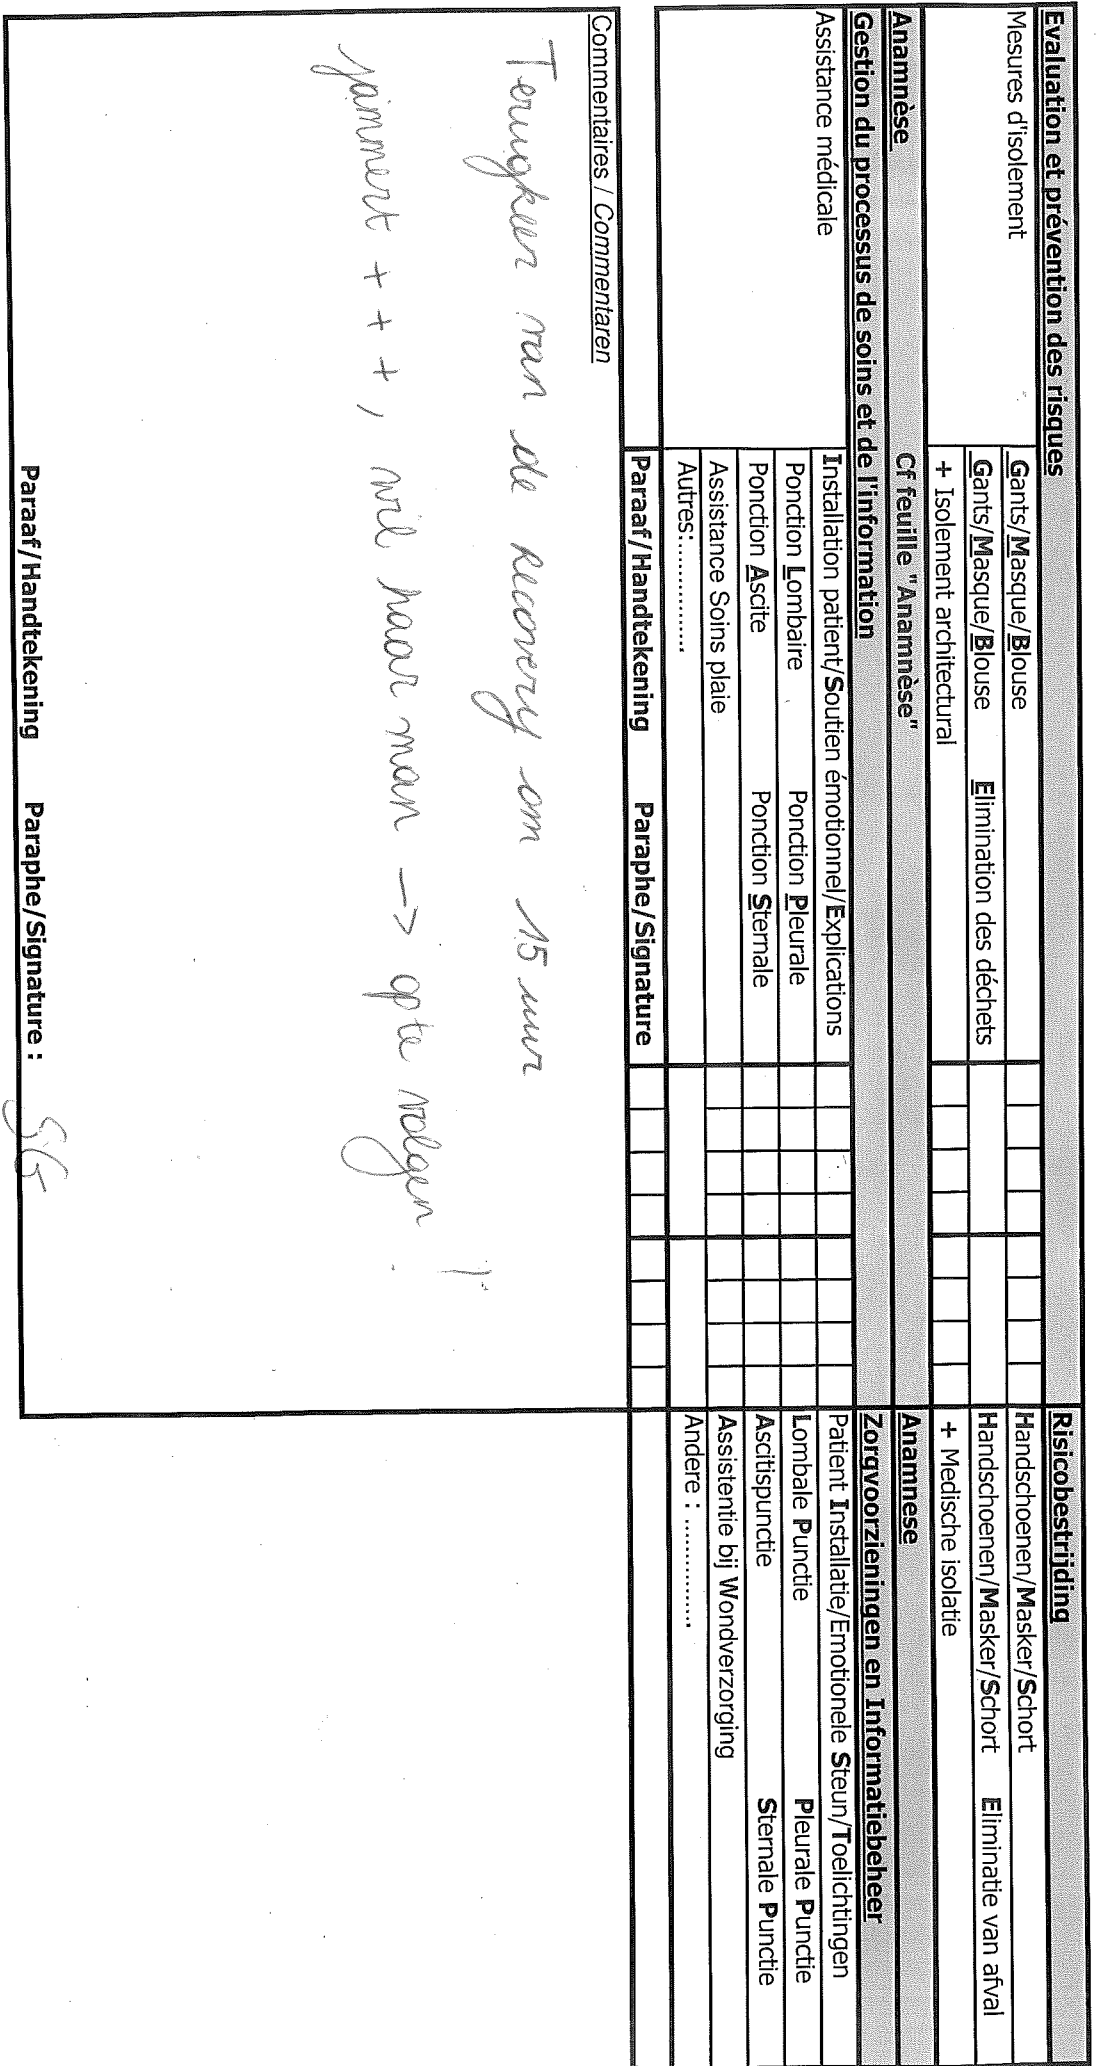 Evaluation et prévention des risques Risicobestrijding
Mesures d'isolement Gants/Masque/Blouse Handschoenen/Masker/Schort
Gants/Masque/Blouse Elimination des déchets Handschoenen/Masker/Schort Eliminatie van afval
+ Isolement architectural + Medische isolatie
Anamnèse Cf feuille "Anamnèse" Anamnese
Gestion du processus de soins et de l'information Zorgvoorzieningen en Informatiebeheer
Assistance médicale Installation patient/Soutien émotionnel/Explications Patient Installatie/Emotionele Steun/Toelichtingen
Ponction Lombaire Ponction Pleurale Lombale Punctie Pleurale Punctie
Ponction Ascite Ponction Sternale Ascitispunctie Sternale Punctie
Assistance Soins plaie Assistentie bij Wondverzorging
Autres:............. Andere : .............
Paraaf/Handtekening Paraphe/Signature
Commentaires / Commentaren
Terugkeer van de recovery om 15 uur
jammert + + +, wil haar man -> op te volgen
Paraaf/Handtekening Paraphe/Signature :